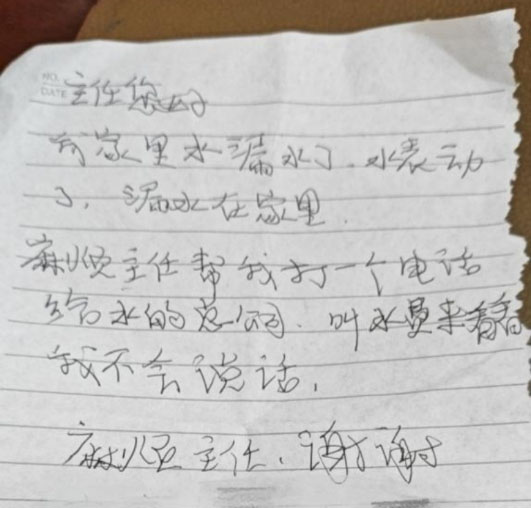 NO.
DATE
主任您好
我家里水漏水了.水表动
了,漏水在家里.
麻烦主任帮我打一个电话
给水的总公司.叫水员来看看
我不会说话,
麻烦主任.谢谢